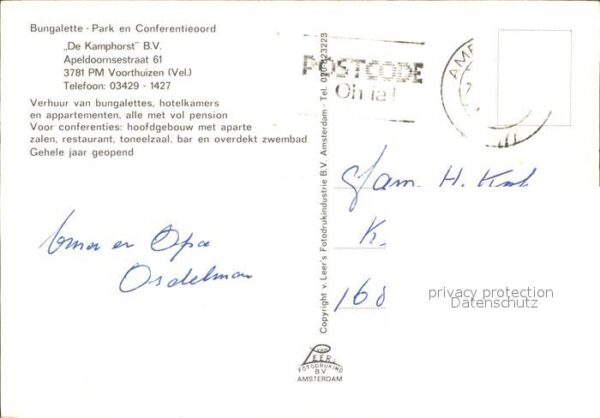 Bungalette - Park en Conferentieoord
„De Kamphorst" B.V.
Apeldoornsestraat 61
3781 PM Voorthuizen (Vel.)
Telefoon: 03429 - 1427
Verhuur van bungalettes, hotelkamers
en appartementen, alle met vol pension
Voor conferenties: hoofdgebouw met aparte
zalen, restaurant, toneelzaal, bar en overdekt zwembad
Gehele jaar geopend
POSTCODE
Oh ja!
AME
Copyright v. Leer's Fotodrukindustrie B.V. Amsterdam - Tel.
Fam. H.
K.
168
Oma en Opa
Osdelman
privacy protection
Datenschutz
VAN
LEER'S
FOTODRUKIND
B.V.
AMSTERDAM